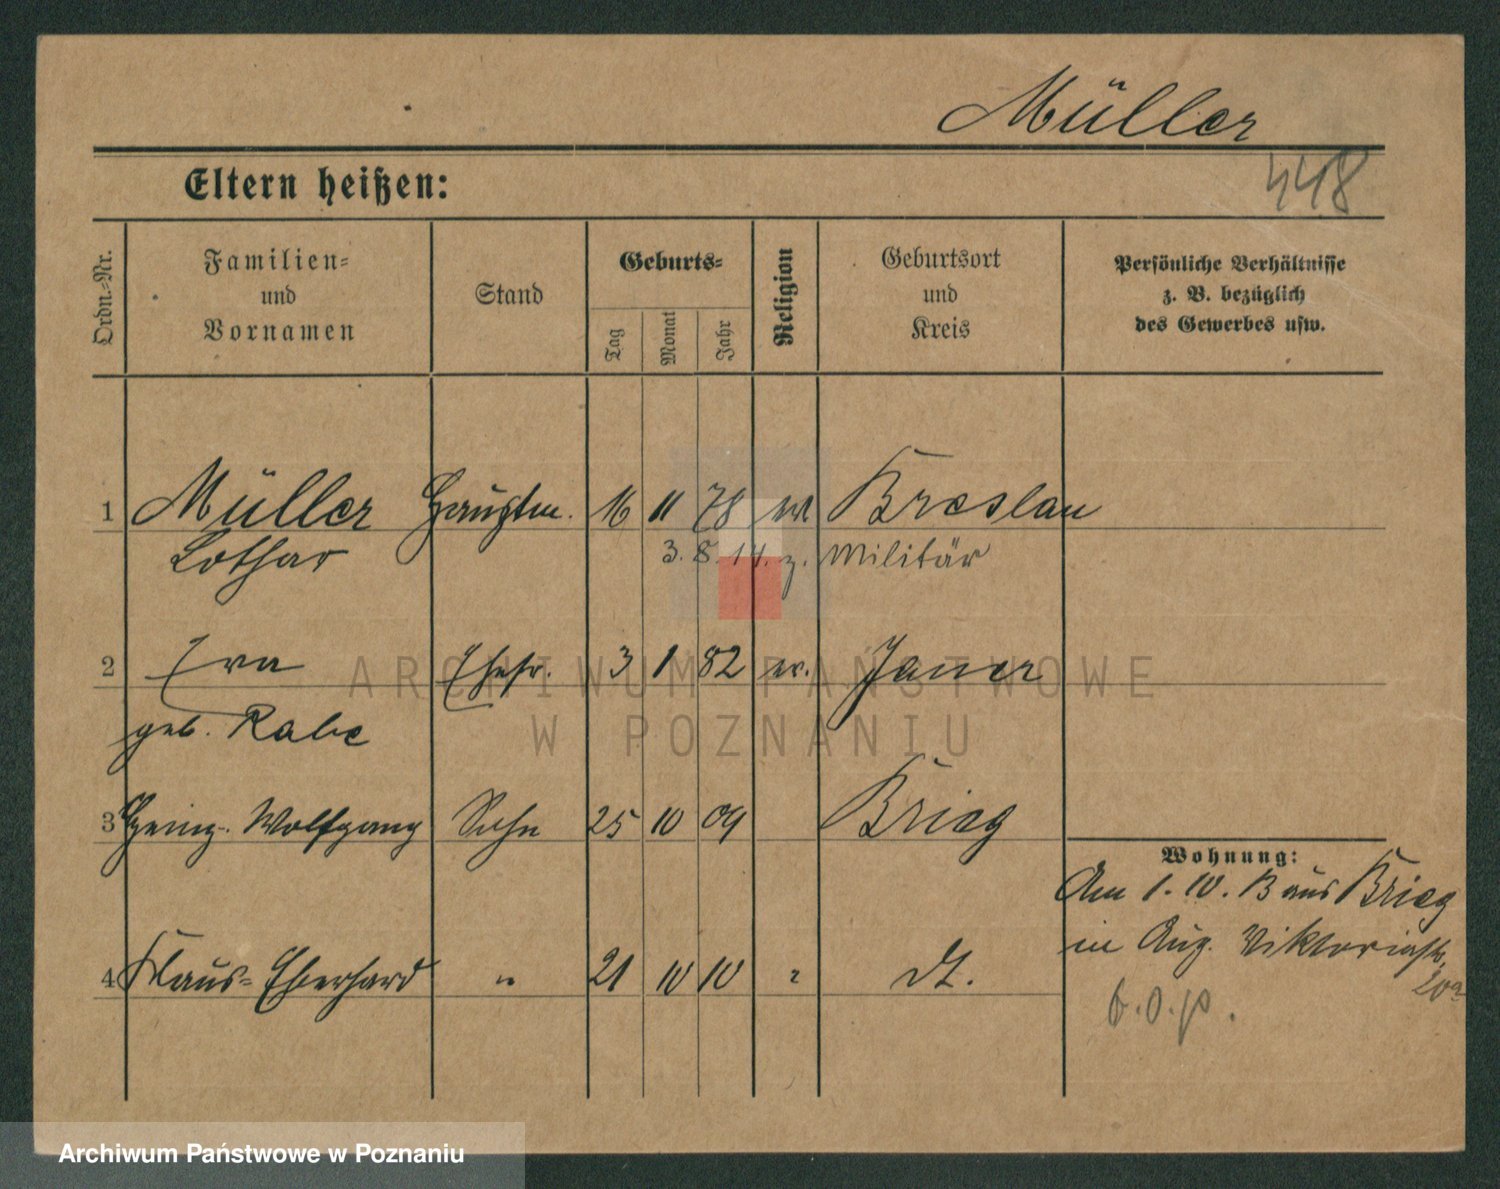 Müller
448
Eltern heißen:
Ordn.-Nr.
Familien-
und
Vornamen
Stand
Geburts-
Tag
Monat
Jahr
Religion
Geburtsort
und
Kreis
Persönliche Verhältnisse
z. B. bezüglich
des Gewerbes usw.
1 Müller Hauptm. 16 11 78 ev Breslau
Lothar 3. 8. 14. z. Militär
2 Eva Ehefr. 3 1 82 ev. Jauer
geb. Rabe
3 Heinz-Wolfgang Sohn 25 10 09 Brieg
Wohnung:
Am 1. 10. 13 aus Brieg
in Aug. Viktoriastr.
20a
4 Klaus-Eberhard " 21 10 10 " dt.
b.o.p.
ARCHIWUM PAŃSTWOWE
W POZNANIU
Archiwum Państwowe w Poznaniu